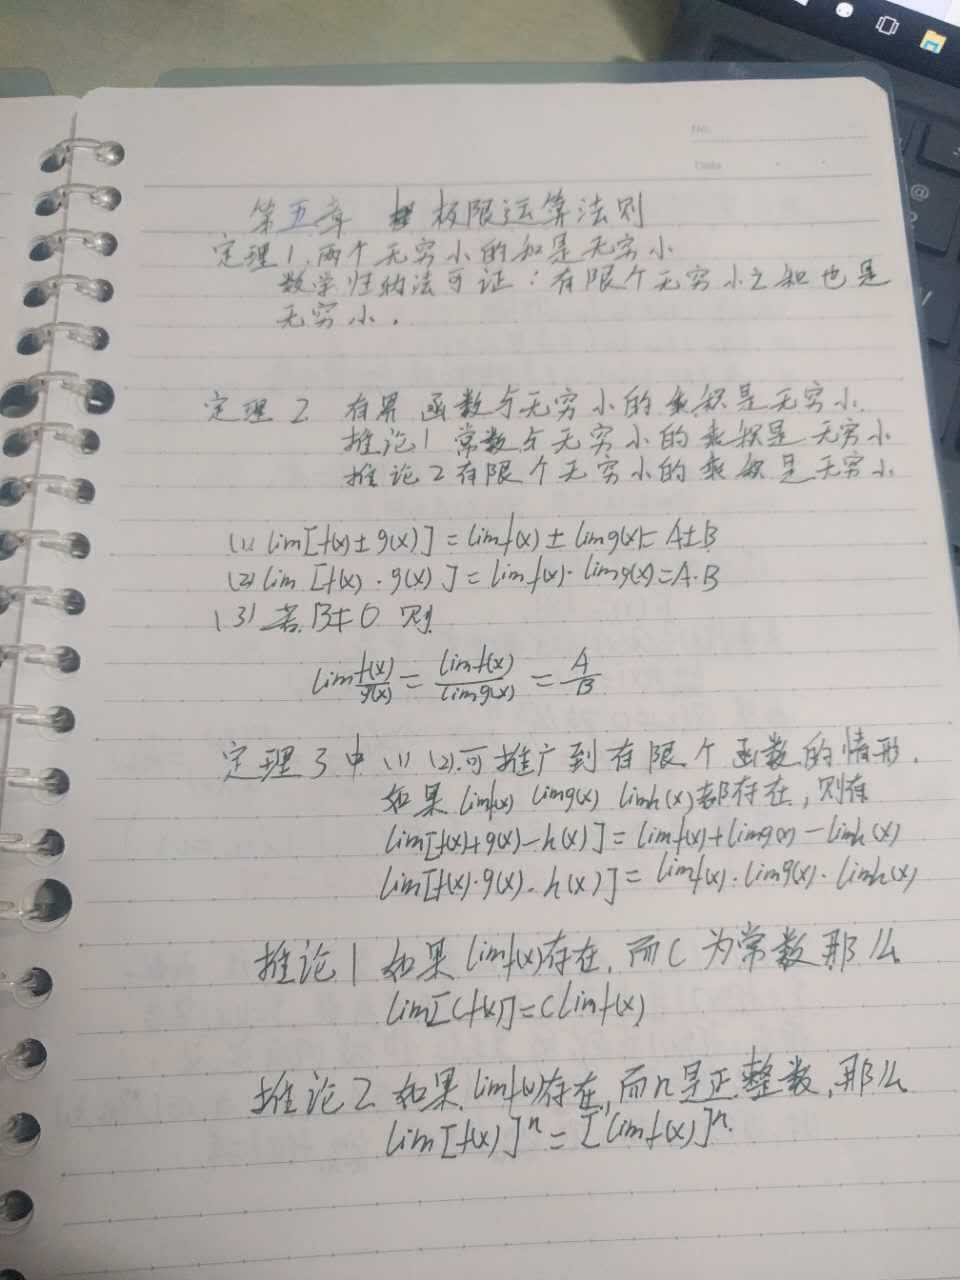 No.
Date
第五章 极限运算法则
定理1.两个无穷小的和是无穷小
数学归纳法可证：有限个无穷小之和也是
无穷小.
定理2 有界函数与无穷小的乘积是无穷小.
推论1 常数与无穷小的乘积是无穷小
推论2有限个无穷小的乘积是无穷小
(1) lim[f(x)±g(x)]=limf(x)±limg(x)=A±B
(2) lim [f(x)·g(x)]=limf(x)·limg(x)=A·B
(3) 若B≠0 则
lim f(x)/g(x) = limf(x)/limg(x) = A/B
定理3中(1)(2).可推广到有限个函数的情形.
如果limf(x) limg(x) limh(x)都存在,则有
lim[f(x)+g(x)-h(x)]=limf(x)+limg(x)-limh(x)
lim[f(x)·g(x)·h(x)]=limf(x)·limg(x)·limh(x)
推论1 如果limf(x)存在,而C为常数那么
lim[Cf(x)]=Climf(x)
推论2 如果limf(x)存在,而n是正整数,那么
lim[f(x)]ⁿ=[limf(x)]ⁿ.